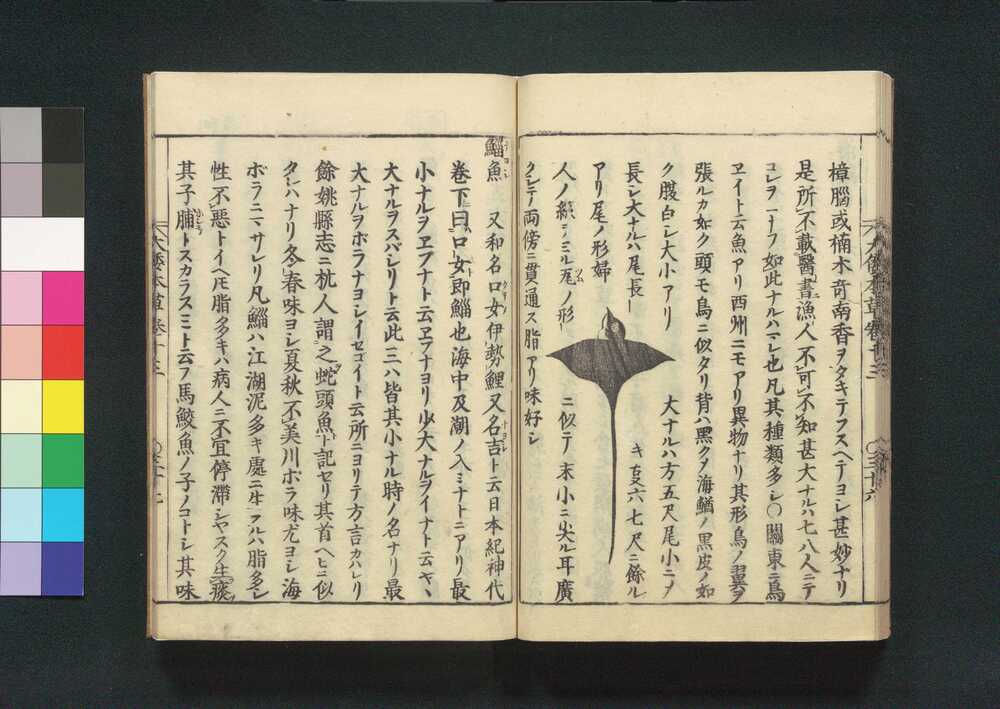 樟腦或楠木奇南香ヲタキテフスヘテヨシ甚妙ナリ
是所不載醫書漁人不可不知甚大ナルハ七八人ニテ
コレヲ一ナフ如此ナルハマレ也凡其種類多シ〇關東ニ鳥
ヱイト云魚アリ西州ニモアリ異物ナリ其形鳥ノ翼ヲ
張ルカ如ク頭モ鳥ニ似タリ背ハ黑ク乄海鰌ノ黒皮ノ如
ク腹白シ大小アリ 大ナルハ方五尺尾小ニ乄
長シ大ナルハ尾長 キ㕝六七尺ニ餘ル
アリ尾ノ形婦
人ノ ノ形 ニ似テ末小ニ尖ル耳廣
クシテ両傍ニ貫通ス脂アリ味好シ
鯔魚 又和名口女伊勢鯉又名吉ト云日本紀神代
巻下曰口女即鯔也海中及潮ノ入ミナトニアリ最
小ナルヲヱブナト云ヱブナヨリ少大ナルヲイナト云ヤヽ
大ナルヲスバシリト云此三ハ皆其小ナル時ノ名ナリ最
大ナルヲボラナヨシイセゴイト云所ニヨリテ方言カハレリ
餘姚縣志ニ杭人謂之蛇頭魚ト記セリ其首ヘヒニ似
タレハナリ冬春味ヨシ夏秋不美川ボラ味尤ヨシ海
ボラニマサレリ凡鯔ハ江湖泥多キ處ニ生フルハ脂多シ
性不悪トイヘ𪜈脂多キハ病人ニ不宜停滯シヤスク生痰
其子脯トスカラスミト云フ馬鮫魚ノ子ノコトシ其味
大倭本草巻十三
大倭本草巻十三 〇三十六